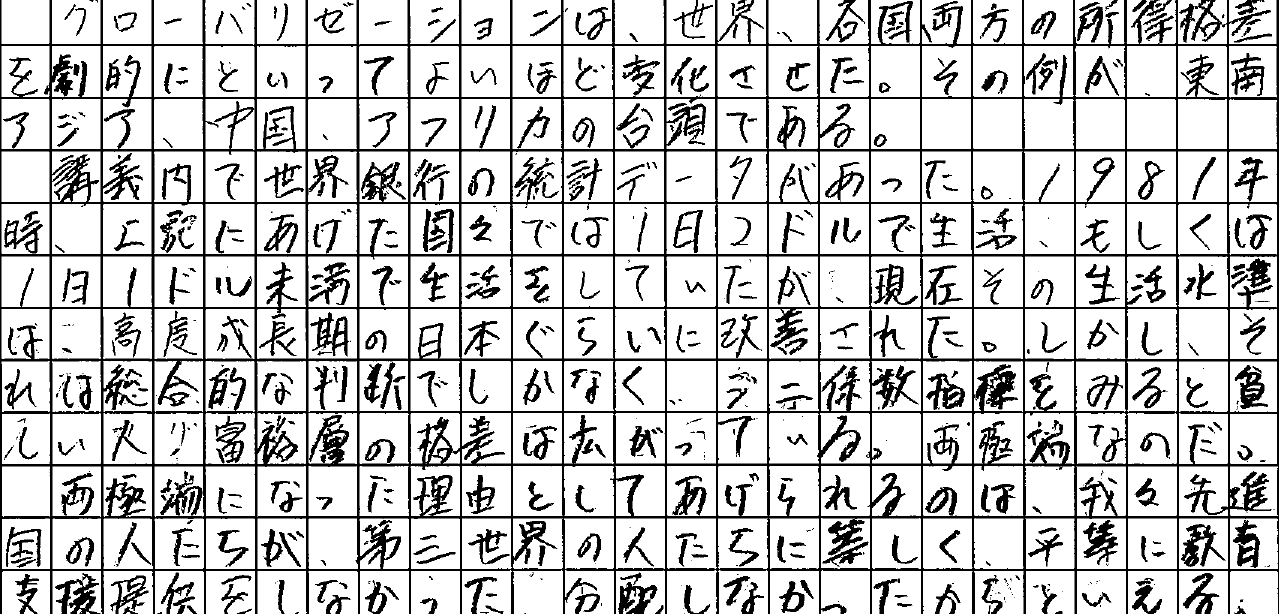 グローバリゼーションは、世界、各国両方の所得格差
を劇的にといってよいほど変化させた。その例が、東南
アジア、中国、アフリカの台頭である。
講義内で世界銀行の統計データがあった。1981年
時、上記にあげた国々では1日2ドルで生活、もしくは
1日1ドル未満で生活をしていたが、現在その生活水準
は、高度成長期の日本ぐらいに改善された。しかし、そ
れは総合的な判断でしかなく、ジニ係数指標をみると貧
しい人々富裕層の格差は広がっている。両極端なのだ。
両極端になった理由としてあげられるのは、我々先進
国の人たちが、第三世界の人たちに等しく、平等に教育
支援提供をしなかった、分配しなかったからといえる。